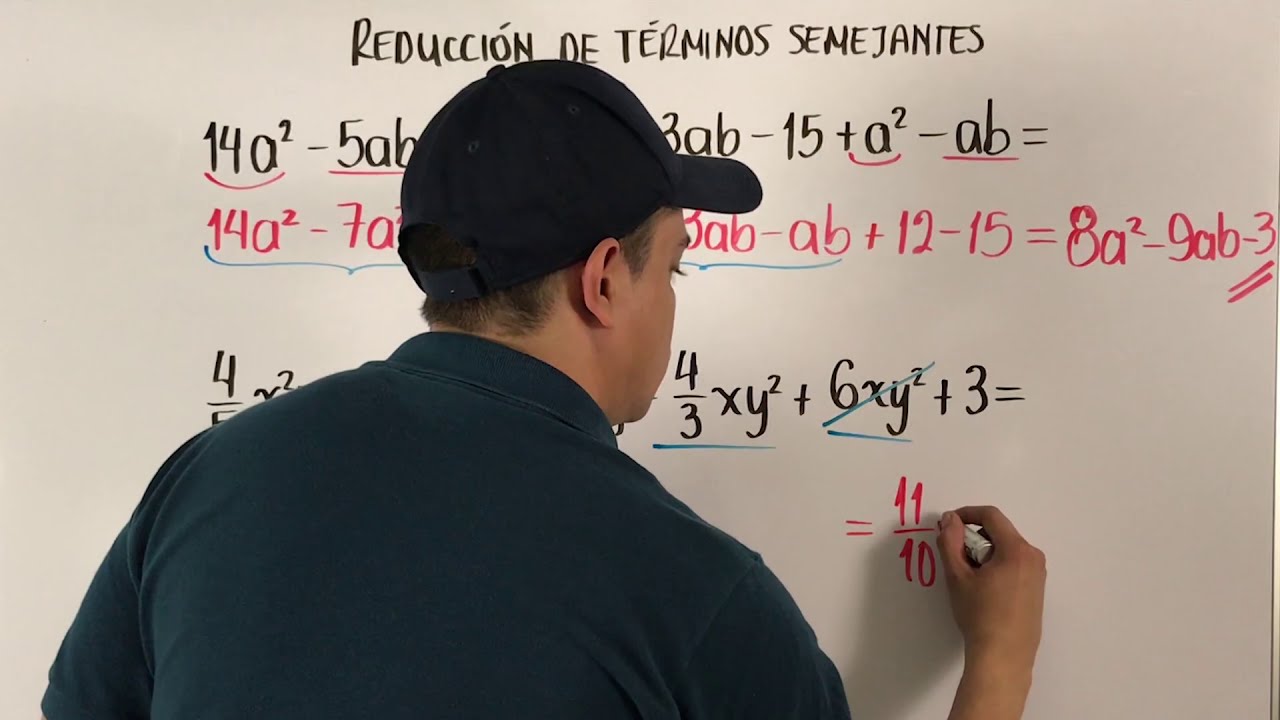 REDUCCIÓN DE TÉRMINOS SEMEJANTES
14a² - 5ab 3ab - 15 + a² - ab =
14a² - 7a² 3ab - ab + 12 - 15 = 8a² - 9ab - 3
4/5 x² 4/3 xy² + 6xy² + 3 =
= 11/10